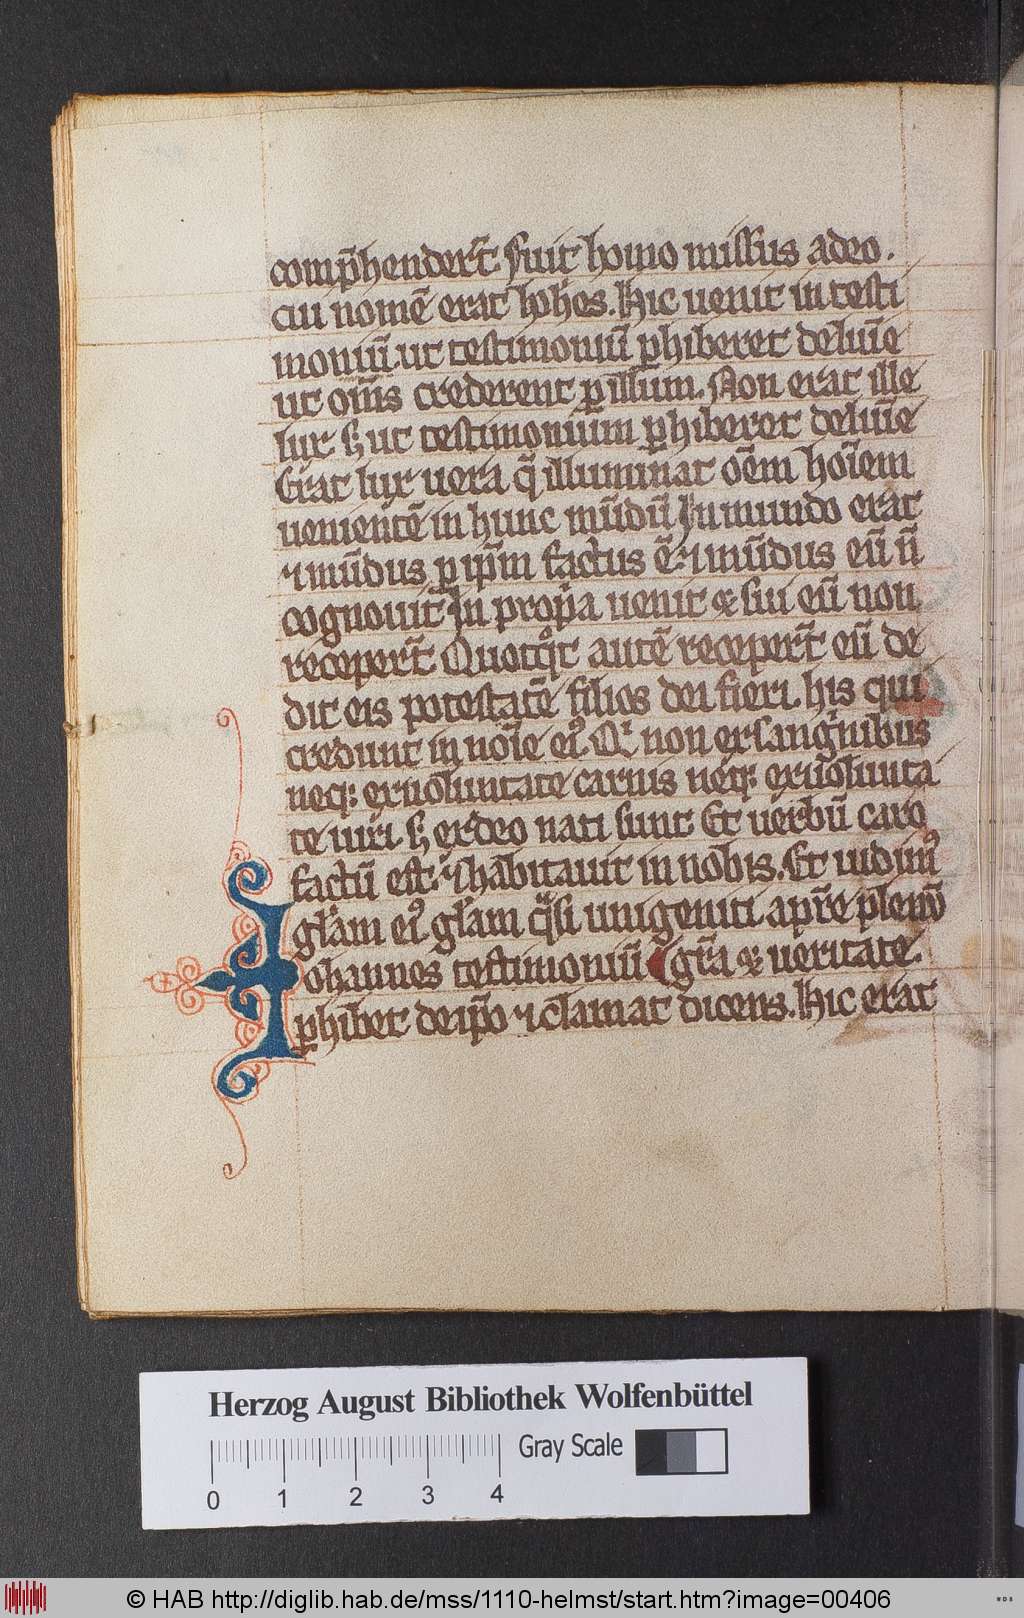 comp̄henderт̄. Fuit homo missus adeo.
cui nomē erat Ioh̄es. Hic uenit in testi
moniū. ut testimoniū ꝑhiberet delumīe
ut om̄s crederent ꝑ illum. Non erat ille
lux. s; ut testimonium ꝑhiberet delumīe
Erat lux uera q̄ illuminat oēm hoīem
uenientē in hunc mūdū In mundo erat
⁊ mūdus ꝑ ip̄m factus ē. ⁊ mūdus eū n̄
cognouit In propria uenit & sui eū non
receper̄t. Quotqͦt autē receper̄t eū de
dit eis potestatē filios dei fieri. his qui
credunt in noīe eiꝰ. Qͥ non ex sanguinibus
neqꝫ ex uoluntate carnis neqꝫ ex uolunta
te uiri. s; ex deo nati sunt Et uerbū caro
factū est. ⁊ habitauit in nobis. Et uidimꝰ
gl̄am eiꝰ gl̄am qͣsi unigeniti a pr̄e plenū
Iohannes testimoniū gr̄a & ueritate.
ꝑhibet de ip̄o ⁊ clamat dicens. Hic erat
Herzog August Bibliothek Wolfenbüttel
Gray Scale
0 1 2 3 4
© HAB http://diglib.hab.de/mss/1110-helmst/start.htm?image=00406